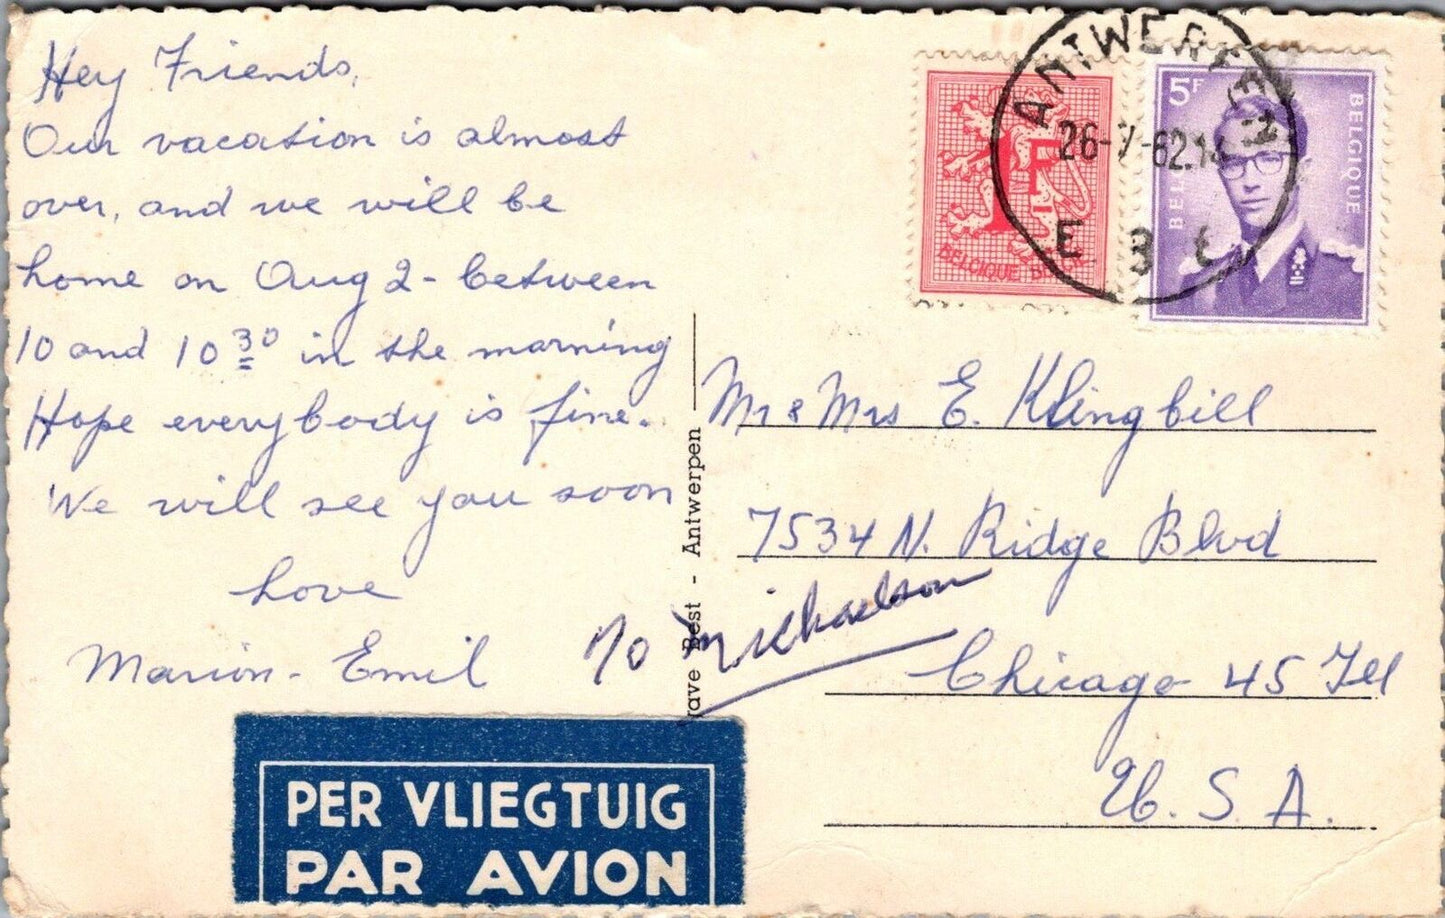 Hey Friends,
Our vacation is almost
over, and we will be
home on Aug 2 - between
10 and 10 30 in the morning
Hope everybody is fine.
We will see you soon
Love
Marion - Emil
PER VLIEGTUIG
PAR AVION
rave Best - Antwerpen
1F
BELGIQUE
5F
BELGIQUE
ANTWERPEN
26-7-62
E 3 E
Mr & Mrs E. Klingbill
7534 N. Ridge Blvd
c/o Michaelson
Chicago 45 Ill
U. S. A.